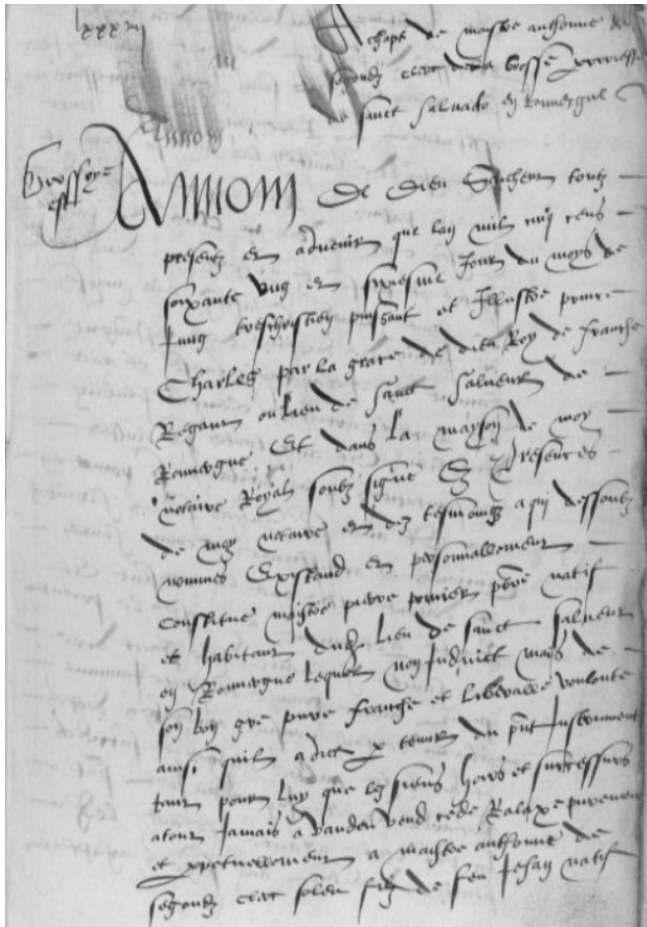 lxxxiii
Achapt de maistre anthonne de
segondz clerc de la
de sanct salvado en Rouuergue
Grossoye
est
Au nom de dieu Saichent toutz
presentz et aduenir que lan mil cinq cens
soixante vng et sixiesme Jour du moys de
Juing treschristien puissant et Illustre prince
Charles par la grace de dieu Roy de france
Regant ou lieu de sanct salueur de
Rouuergue Et dans la mayson de moy
notaire Royal soubz signe Es presences
de moy notaire et dez tesmoingz a qui dessoubz
nommes Existand et personnallement
constitue maistre pierre pbre natif
et habitant dud lieu de sanct salueur
en Rouuergue lequel non Induict mays de
son bon gre pure franche et liberalle voulonte
ainsi quil a dict p tenur du pnt Instrument
tant pour luy que les siens hoirs et successeurs
atout Jamais a vandeu vend cede Ralaxe purement
et ppetuellement a maistre anthonne de
segondz clerc filz de feu Jehan natif